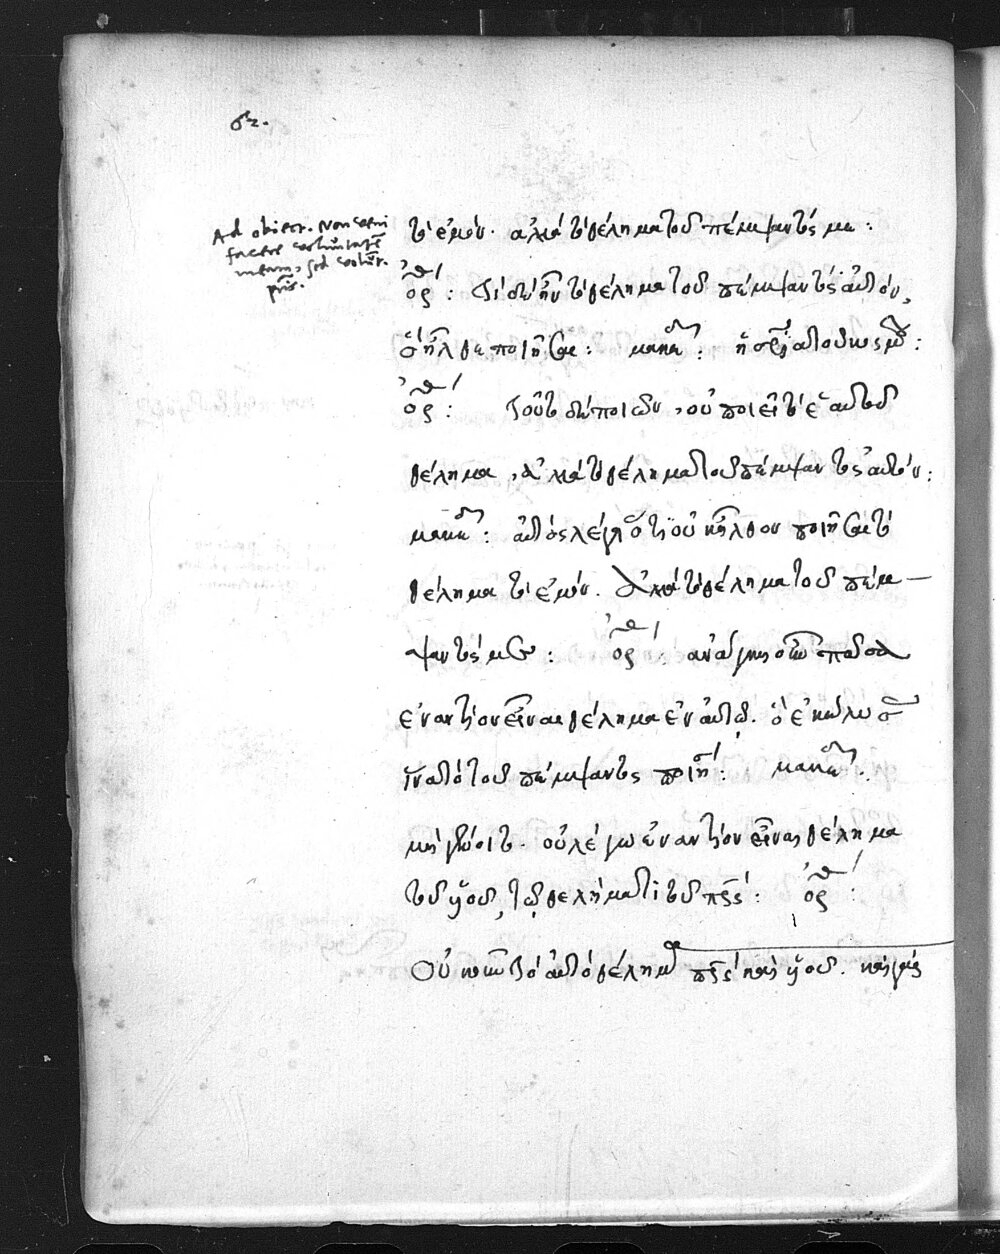 62.
Ad obiect. Non veni
facere voluntatē
meam, sed volūt.
pr̄is.
τὸ ἐμόν. ἀλλὰ τὸ θέλημα τοῦ πέμψαντός με:
ὀρθ: Τί οὖν ἦν τὸ θέλημα τοῦ πέμψαντος αὐτόν,
ὃ ἦλθε ποιῆσαι: μακεδ: ἡ σὰρξ αὐτοῦ
ὀρθ: Τοῦτο οὖν ποιῶν, οὐ ποιεῖ τὸ ἑαυτοῦ
θέλημα, ἀλλὰ τὸ θέλημα τοῦ πέμψαντος αὐτόν:
μακεδ: αὐτὸς λέγει ὅτι οὐκ ἦλθον ποιῆσαι τὸ
θέλημα τὸ ἐμόν. ἀλλὰ τὸ θέλημα τοῦ πέμ—
ψαντός με: ὀρθ:
ἐναντίον εἶναι θέλημα ἐν αὐτῷ. ὃ ἐκώλυσεν
ἵνα τὸ τοῦ πέμψαντος ποιῇ: μακεδ.
μὴ γένοιτο. οὐ λέγω ἐναντίον εἶναι θέλημα
τοῦ υἱοῦ, τῷ θελήματι τοῦ πρς: ὀρθ:
Οὐκοῦν τὸ αὐτὸ θέλημα πρς καὶ υἱοῦ. καὶ γὰρ